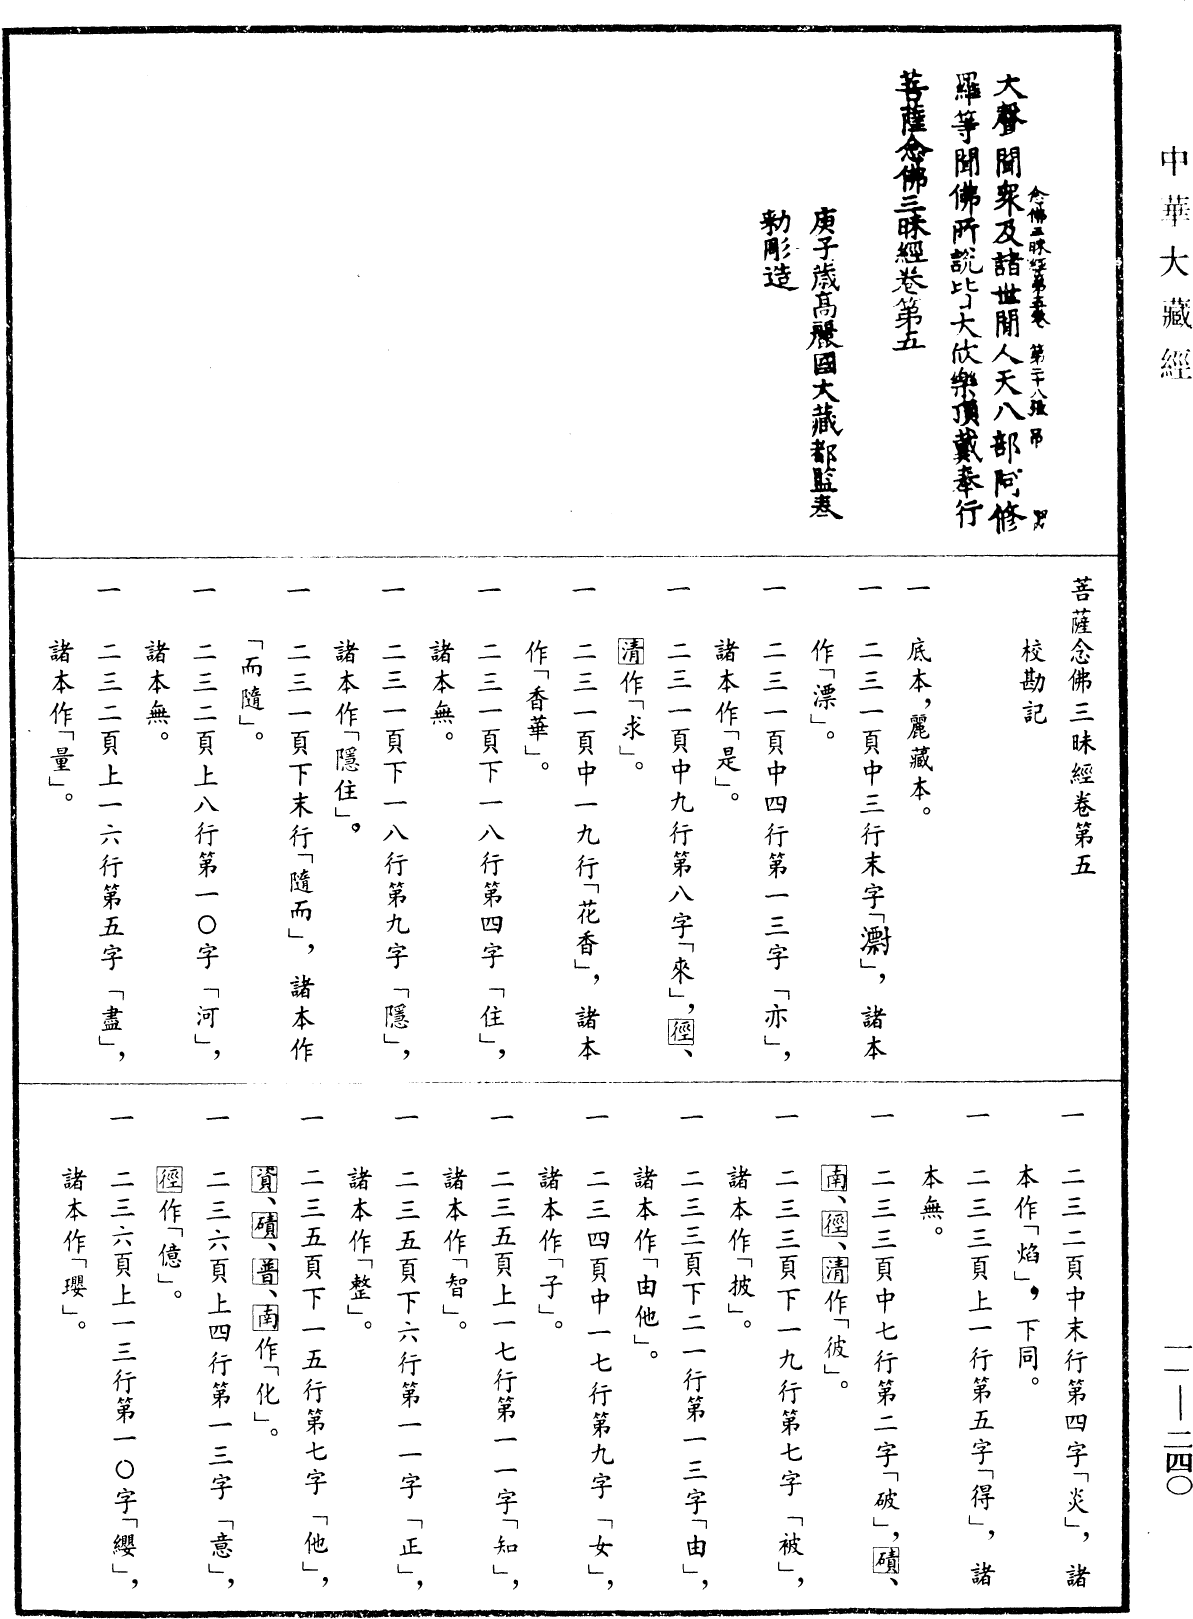 中華大藏經
念佛三昧經第五卷　第二十八張　吊
大聲聞眾及諸世間人天八部阿修
羅等聞佛所說皆大欣樂頂戴奉行
菩薩念佛三昧經卷第五
庚子歲高麗國大藏都監奉
勅彫造
菩薩念佛三昧經卷第五
校勘記
一　底本，麗藏本。
一　二三一頁中三行末字「㶑」，諸本
作「漂」。
一　二三一頁中四行第一三字「亦」，
諸本作「是」。
一　二三一頁中九行第八字「來」，徑、
清作「求」。
一　二三一頁中一九行「花香」，諸本
作「香華」。
一　二三一頁下一八行第四字「住」，
諸本無。
一　二三一頁下一八行第九字「隱」，
諸本作「隱住」。
一　二三一頁下末行「隨而」，諸本作
「而隨」。
一　二三二頁上八行第一〇字「河」，
諸本無。
一　二三二頁上一六行第五字「盡」，
諸本作「量」。
一　二三二頁中末行第四字「炎」，諸
本作「焰」，下同。
一　二三三頁上一行第五字「得」，諸
本無。
一　二三三頁中七行第二字「破」，磧、
南、徑、清作「彼」。
一　二三三頁下一九行第七字「被」，
諸本作「披」。
一　二三三頁下二一行第一三字「由」，
諸本作「由他」。
一　二三四頁中一七行第九字「女」，
諸本作「子」。
一　二三五頁上一七行第一一字「知」，
諸本作「智」。
一　二三五頁下六行第一一字「正」，
諸本作「整」。
一　二三五頁下一五行第七字「他」，
資、磧、普、南作「化」。
一　二三六頁上四行第一三字「意」，
徑作「億」。
一　二三六頁上一三行第一〇字「纓」，
諸本作「瓔」。
一一—二四〇